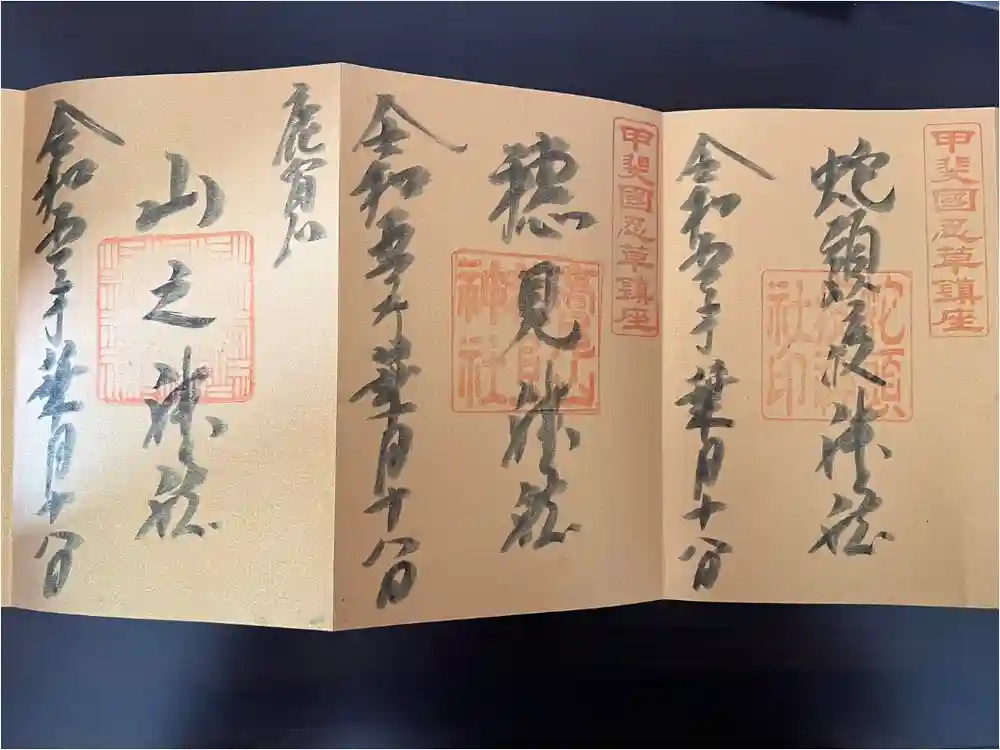 甲斐國忍草鎮座
蛇頭疫神社
令和五年葉月十八日
甲斐國忍草鎮座
穂見神社
神社
令和五年葉月十八日
山之神社
令和五年葉月十八日